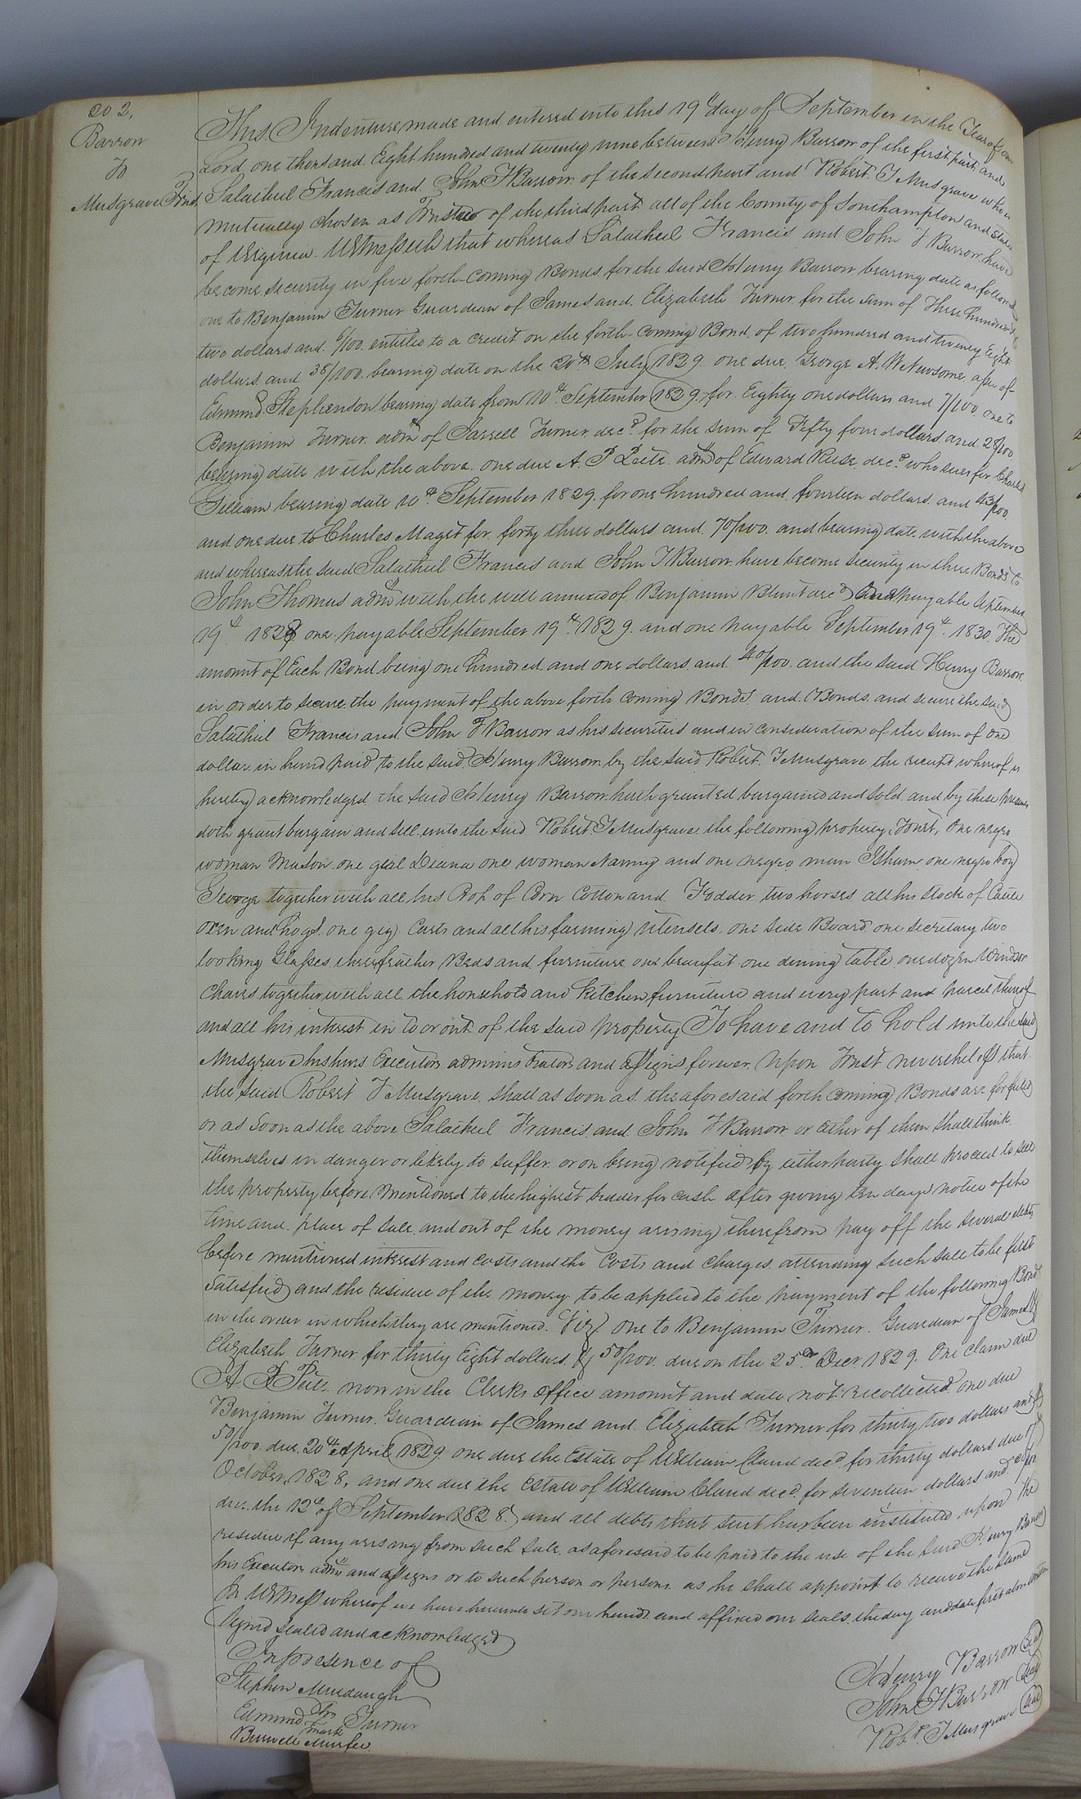 202,
Barrow
To
Musgrave Trust
This Indenture, made and entered into this 19th day of September in the Year of our
Lord one thousand Eight hundred and twenty nine between Henry Barrow of the first part, and
Salathiel Francis and John T Barrow of the second part and Robert T Musgrave who is
mutually chosen as Trustee of the third part all of the County of Southampton and State
of Virginia. Witnesseth that whereas Salathiel Francis and John T Barrow have
become security in five forth coming Bonds for the said Henry Barrow bearing date as follows
one to Benjamin Turner Guardian of James and Elizabeth Turner for the sum of three hundred &
two dollars and /100 entitled to a credit on the forth coming Bond of two hundred and twenty Eight
dollars and 38/100 bearing date on the 20th July 1829. one due George A. W Newsome assee of
Edmund Stephenson bearing date from 10th September 1829 for Eighty one dollars and 7/100 one to
Benjamin Turner admr of Jassell Turner decd for the sum of Fifty four dollars and 28/100
bearing date with the above. one due A. P Peete admr of Edward Ruse decd who sues for Charles
Gilliam bearing date 10th September 1829. for one hundred and fourteen dollars and 43/100
and one due to Charles Maget for forty three dollars and 70/100. and bearing date with the above
and whereas the said Salathiel Francis and John T Barrow have become security in three Bonds to
John Thomas admr with the will annexed of Benjamin Blunt decd One payable September
19th 1828 one payable September 19th 1829. and one payable September 19th 1830. The
amount of Each Bond being one hundred and one dollars and 40/100. and the said Henry Barrow
in order to secure the payment of the above forth coming Bonds and Bonds and secure the said
Salathiel Francis and John T Barrow as his securities and in consideration of the sum of one
dollar in hand paid to the said Henry Barrow by the said Robert T Musgrave the receipt whereof is
hereby acknowledged the said Henry Barrow hath granted bargained and sold and by these presents
doth grant bargain and sell unto the said Robert T Musgrave the following property, Towit, One negro
woman Mason one girl Deana one woman Nanny and one negro man Isham one negro boy
George together with all his Crop of Corn Cotton and Fodder two horses all his Stock of Cattle
oxen and hogs. one gig Carts and all his farming utensels. one Side Board one secretary two
looking Glasses three feather Beds and furniture one beaufat one dining table one dozen Windsor
Chairs together with all the household and kitchen furniture and every part and parcel thereof
and all his interest in to or out of the said property To have and to hold unto the said
Musgrave his heirs Executors administrators and assigns forever. Upon Trust nevertheless that
the said Robert T Musgrave shall as soon as the aforesaid forth coming Bonds are forfeited
or as soon as the above Salathiel Francis and John T Barrow or Either of them shall think
themselves in danger or likely to suffer or on being notified by either party shall proceed to sell
the property before mentioned to the highest bidder for cash after giving ten days notice of the
time and place of sale and out of the money arising therefrom pay off the several debts
before mentioned interest and costs and the Costs and charges attending such sale to be first
Satisfied and the residue of the money to be applied to the payment of the following Bonds
in the order in which they are mentioned. Viz one to Benjamin Turner Guardian of James &
Elizabeth Turner for thirty Eight dollars & 50/100 due on the 25th Decr 1829. One claim due
A. P Peete now in the Clerks office amount and date not recollected one due
Benjamin Turner Guardian of James and Elizabeth Turner for thirty two dollars and
50/100 due 20th April 1829. one due the Estate of William Claud decd for thirty dollars due
October 1828, and one due the Estate of William Claud decd for seventeen dollars and /100
due the 12th of September 1828. and all debts that suit has been instituted upon The
residue if any arising from such sale as aforesaid to be paid to the use of the said Henry Barrow
his Executors admrs and assigns or to such person or persons as he shall appoint to receive the same
In Witness whereof we have hereunto set our hands and affixed our seals the day and date first above written
Signed sealed and acknowledged
In presence of
Stephen Murdaugh
Edmund his mark Turner
Burwell Murfee
Henry Barrow (Seal)
John T Barrow (Seal)
Robt T Musgrave (Seal)